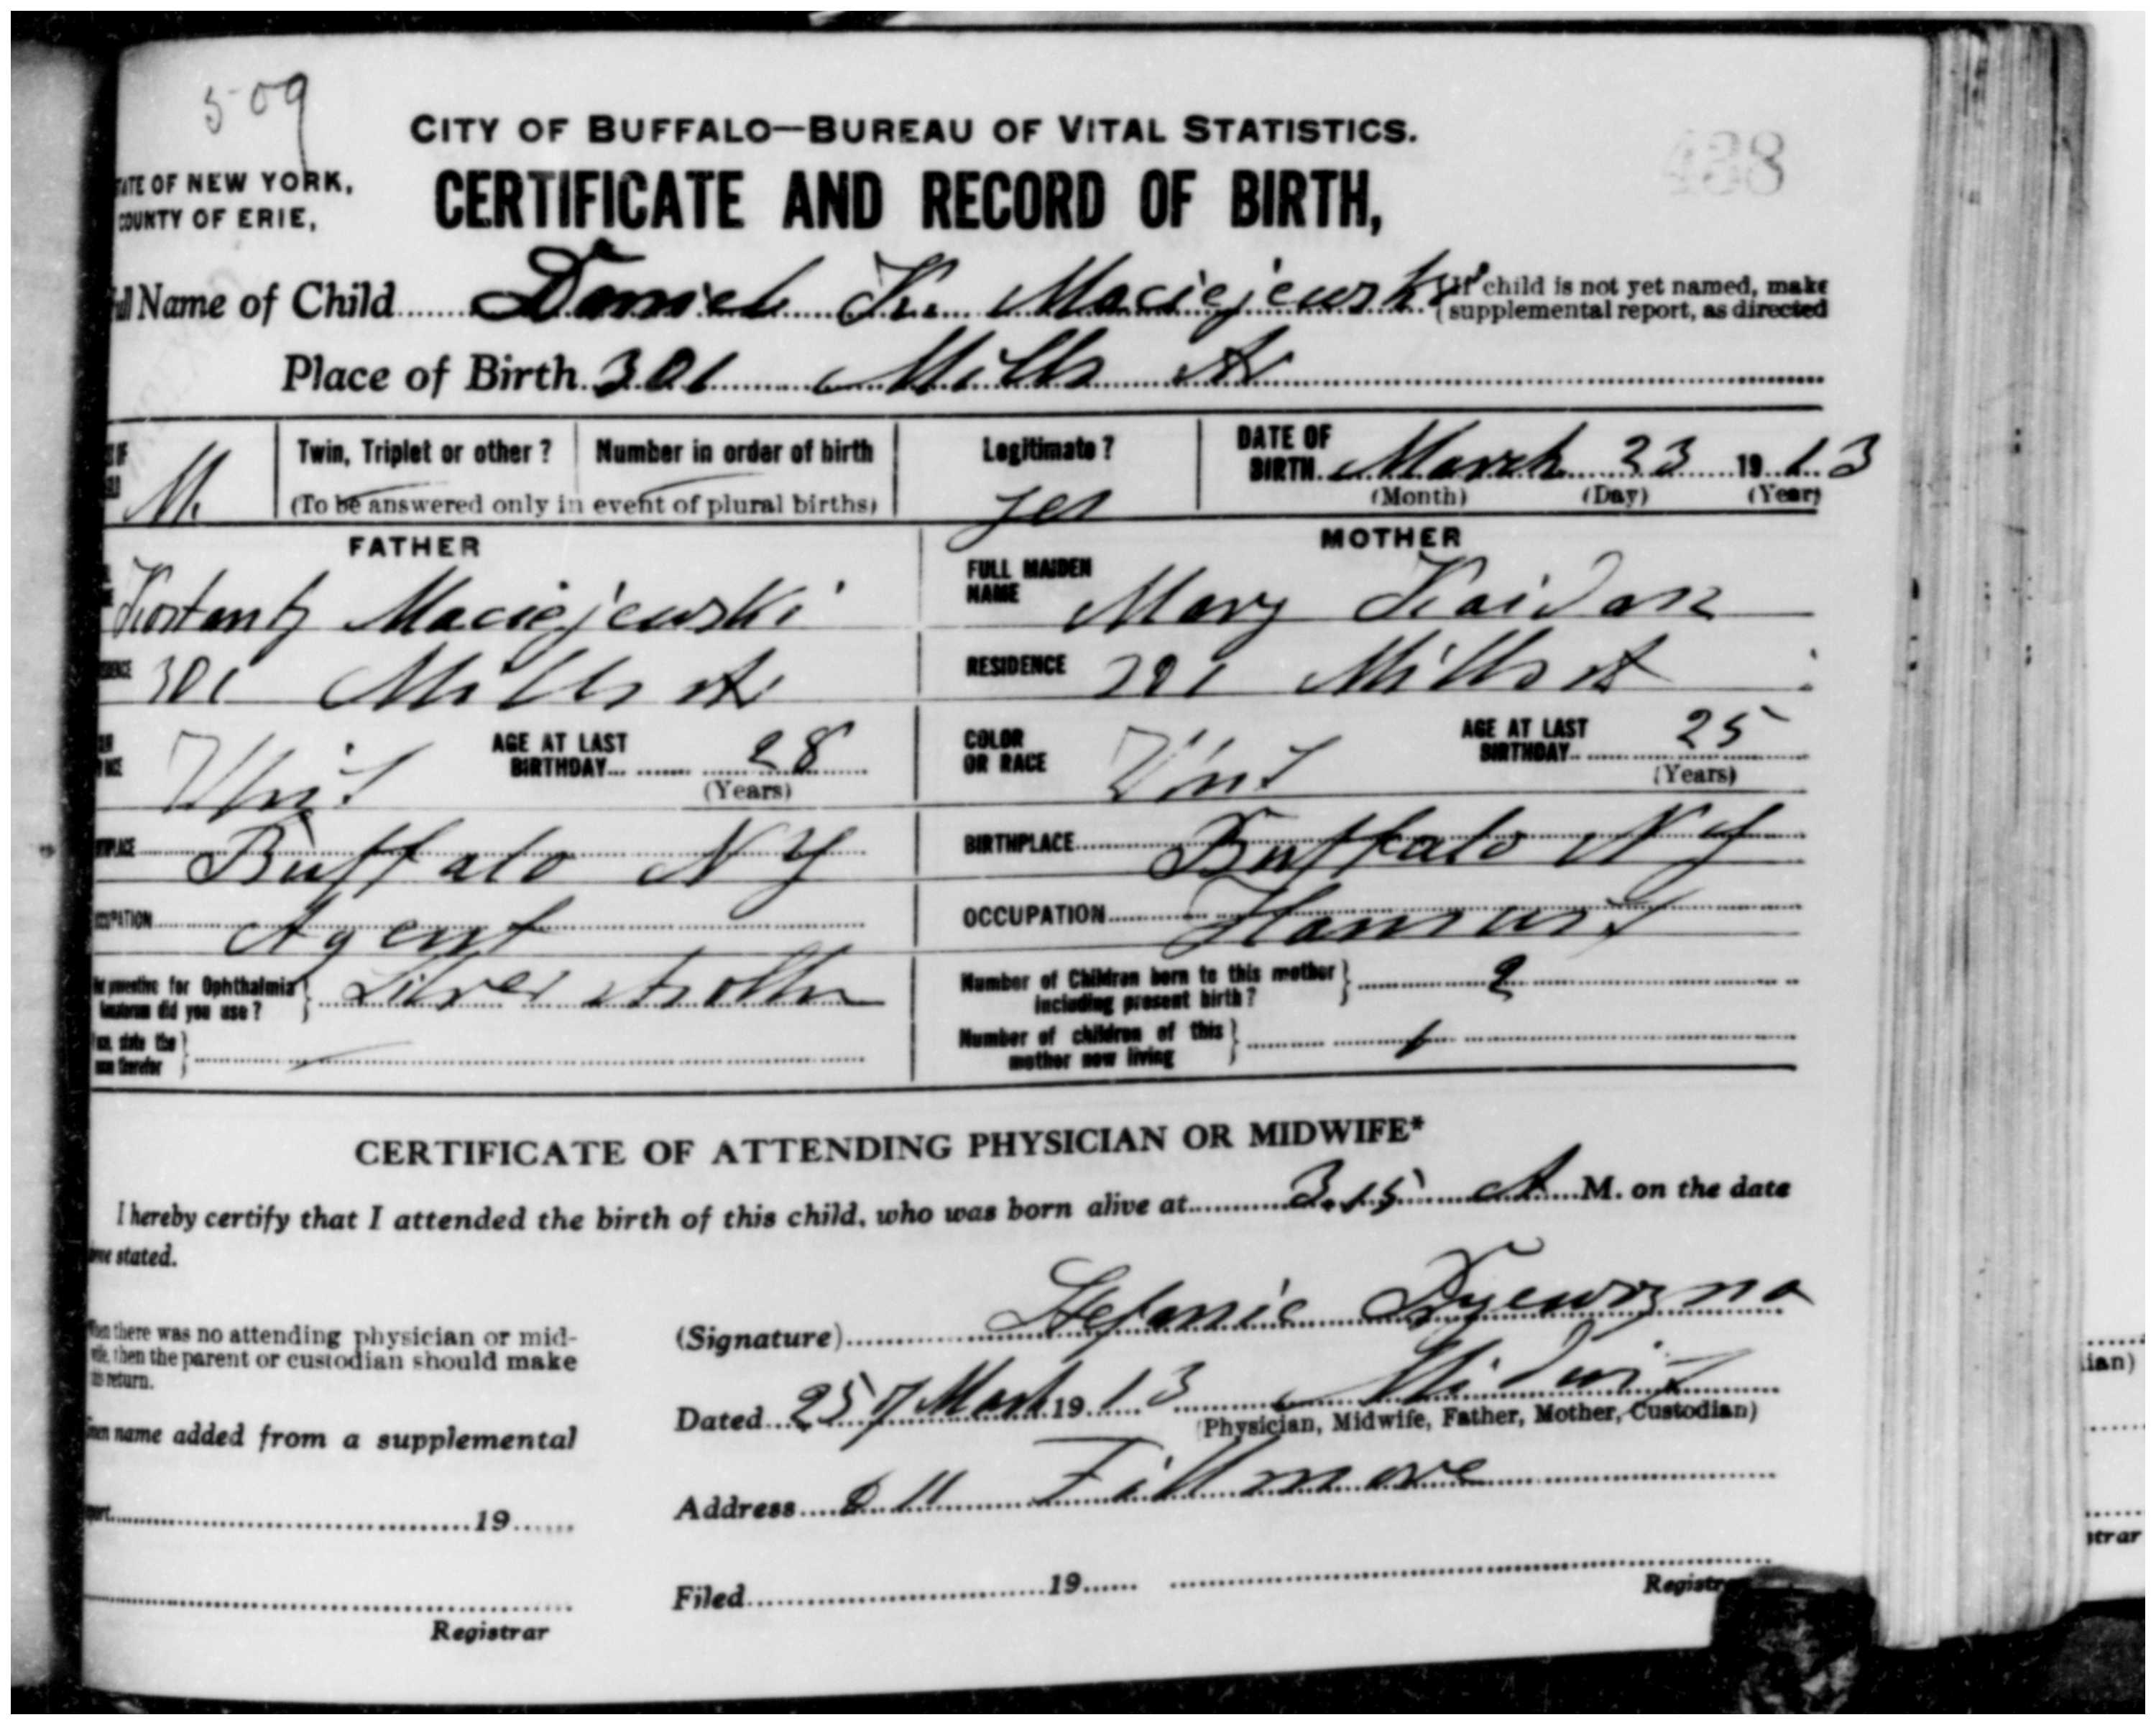 509
CITY OF BUFFALO—BUREAU OF VITAL STATISTICS.
438
TATE OF NEW YORK,
COUNTY OF ERIE,
CERTIFICATE AND RECORD OF BIRTH,
ull Name of Child Daniel K. Maciejewski { If child is not yet named, make
supplemental report, as directed
Place of Birth 301 Mills St
M. Twin, Triplet or other? Number in order of birth Legitimate? DATE OF
BIRTH March 23 1913
(To be answered only in event of plural births) yes (Month) (Day) (Year)
FATHER MOTHER
Kostanty Maciejewski FULL MAIDEN
NAME Mary Kaidan
301 Mills St RESIDENCE 301 Mills St
Whit AGE AT LAST
BIRTHDAY 28
(Years)
COLOR
OR RACE Whit AGE AT LAST
BIRTHDAY 25
(Years)
Buffalo NY BIRTHPLACE Buffalo NY
CCUPATION Agent OCCUPATION
preventive for Ophthalmia
did you use? } Silver Number of Children born to this mother
including present birth? } 2
state the
therefor } Number of children of this
mother now living } 1
CERTIFICATE OF ATTENDING PHYSICIAN OR MIDWIFE*
I hereby certify that I attended the birth of this child, who was born alive at 3.15 A M. on the date
stated.
(Signature) Stefanie
When there was no attending physician or mid-
wife, then the parent or custodian should make
this return.
Dated 25 of March 1913 Midwif
(Physician, Midwife, Father, Mother, Custodian)
name added from a supplemental
Address 611 Fillmore
19
Filed 19
Registrar
Registrar
ian)
strar